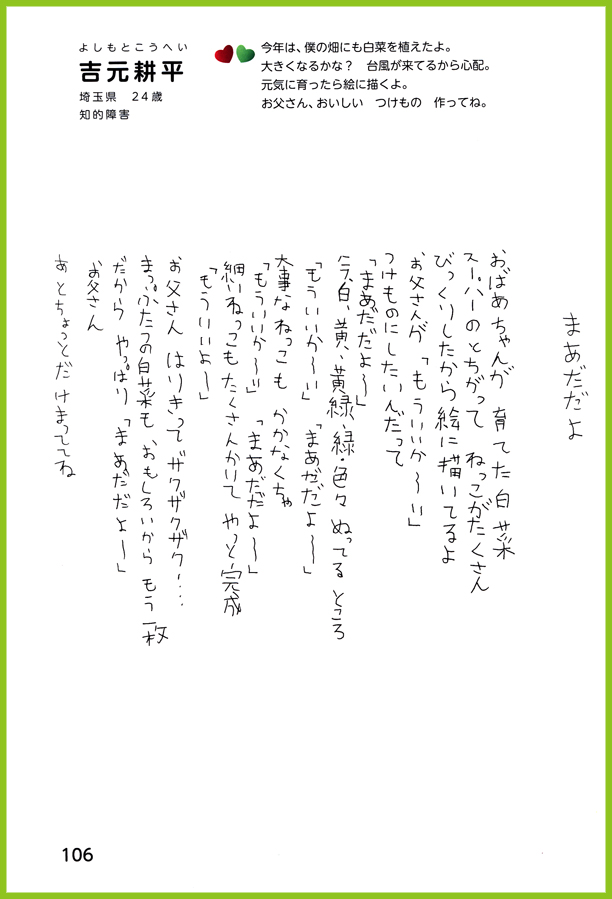 よしもとこうへい
吉元耕平
埼玉県 24歳
知的障害
今年は、僕の畑にも白菜を植えたよ。
大きくなるかな? 台風が来てるから心配。
元気に育ったら絵に描くよ。
お父さん、おいしい つけもの 作ってね。
まあだだよ
おばあちゃんが 育てた白菜
スーパーのとちがって ねっこがたくさん
びっくりしたから絵に描いてるよ
お父さんが「もういいか〜い」
つけものにしたいんだって
「まあだだよ〜」
今、白、黄、黄緑、緑・色々 ぬってる ところ
「もういいか〜い」 「まあだだよ〜」
大事な ねっこも かかなくちゃ
「もういいか〜い」 「まあだだよ〜」
細いねっこも たくさんかいて やっと 完成
「もういいよ〜」
お父さん はりきって ザクザクザク…
まっぷたつの白菜も おもしろいから もう一枚
だから やっぱり 「まあだだよ〜」
お父さん
あ とちょっとだけまっててね
106